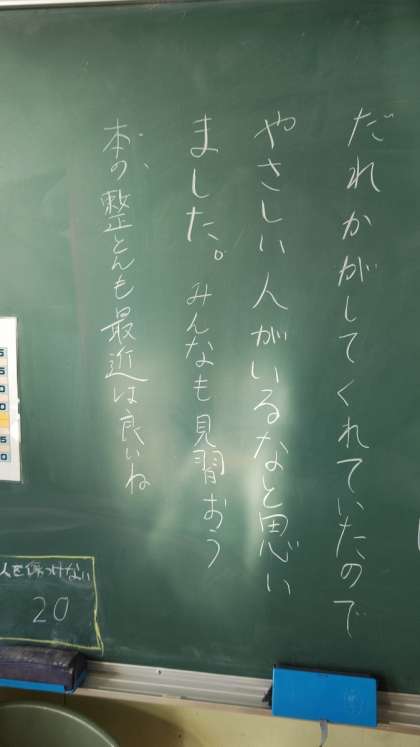 だれかがしてくれていたので
やさしい人がいるなと思い
ました。みんなも見習おう
本の整とんも最近は良いね
人を傷つけない
20
5
5
0
0
5
0